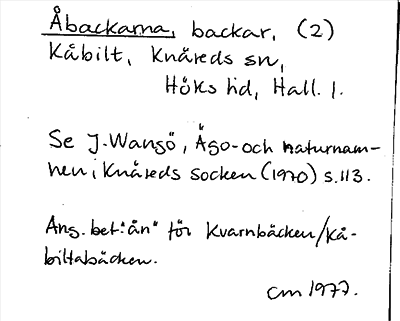 Åbackarna, backar, (2)
Kåbilt, Knäreds sn,
Höks hd, Hall. l.
Se J. Wangö, Ägo- och naturnam-
nen i Knäreds socken (1970) s. 113.
Ang. bet. "ån" för Kvarnbäcken/Kå-
biltabäcken.
cm 1977.